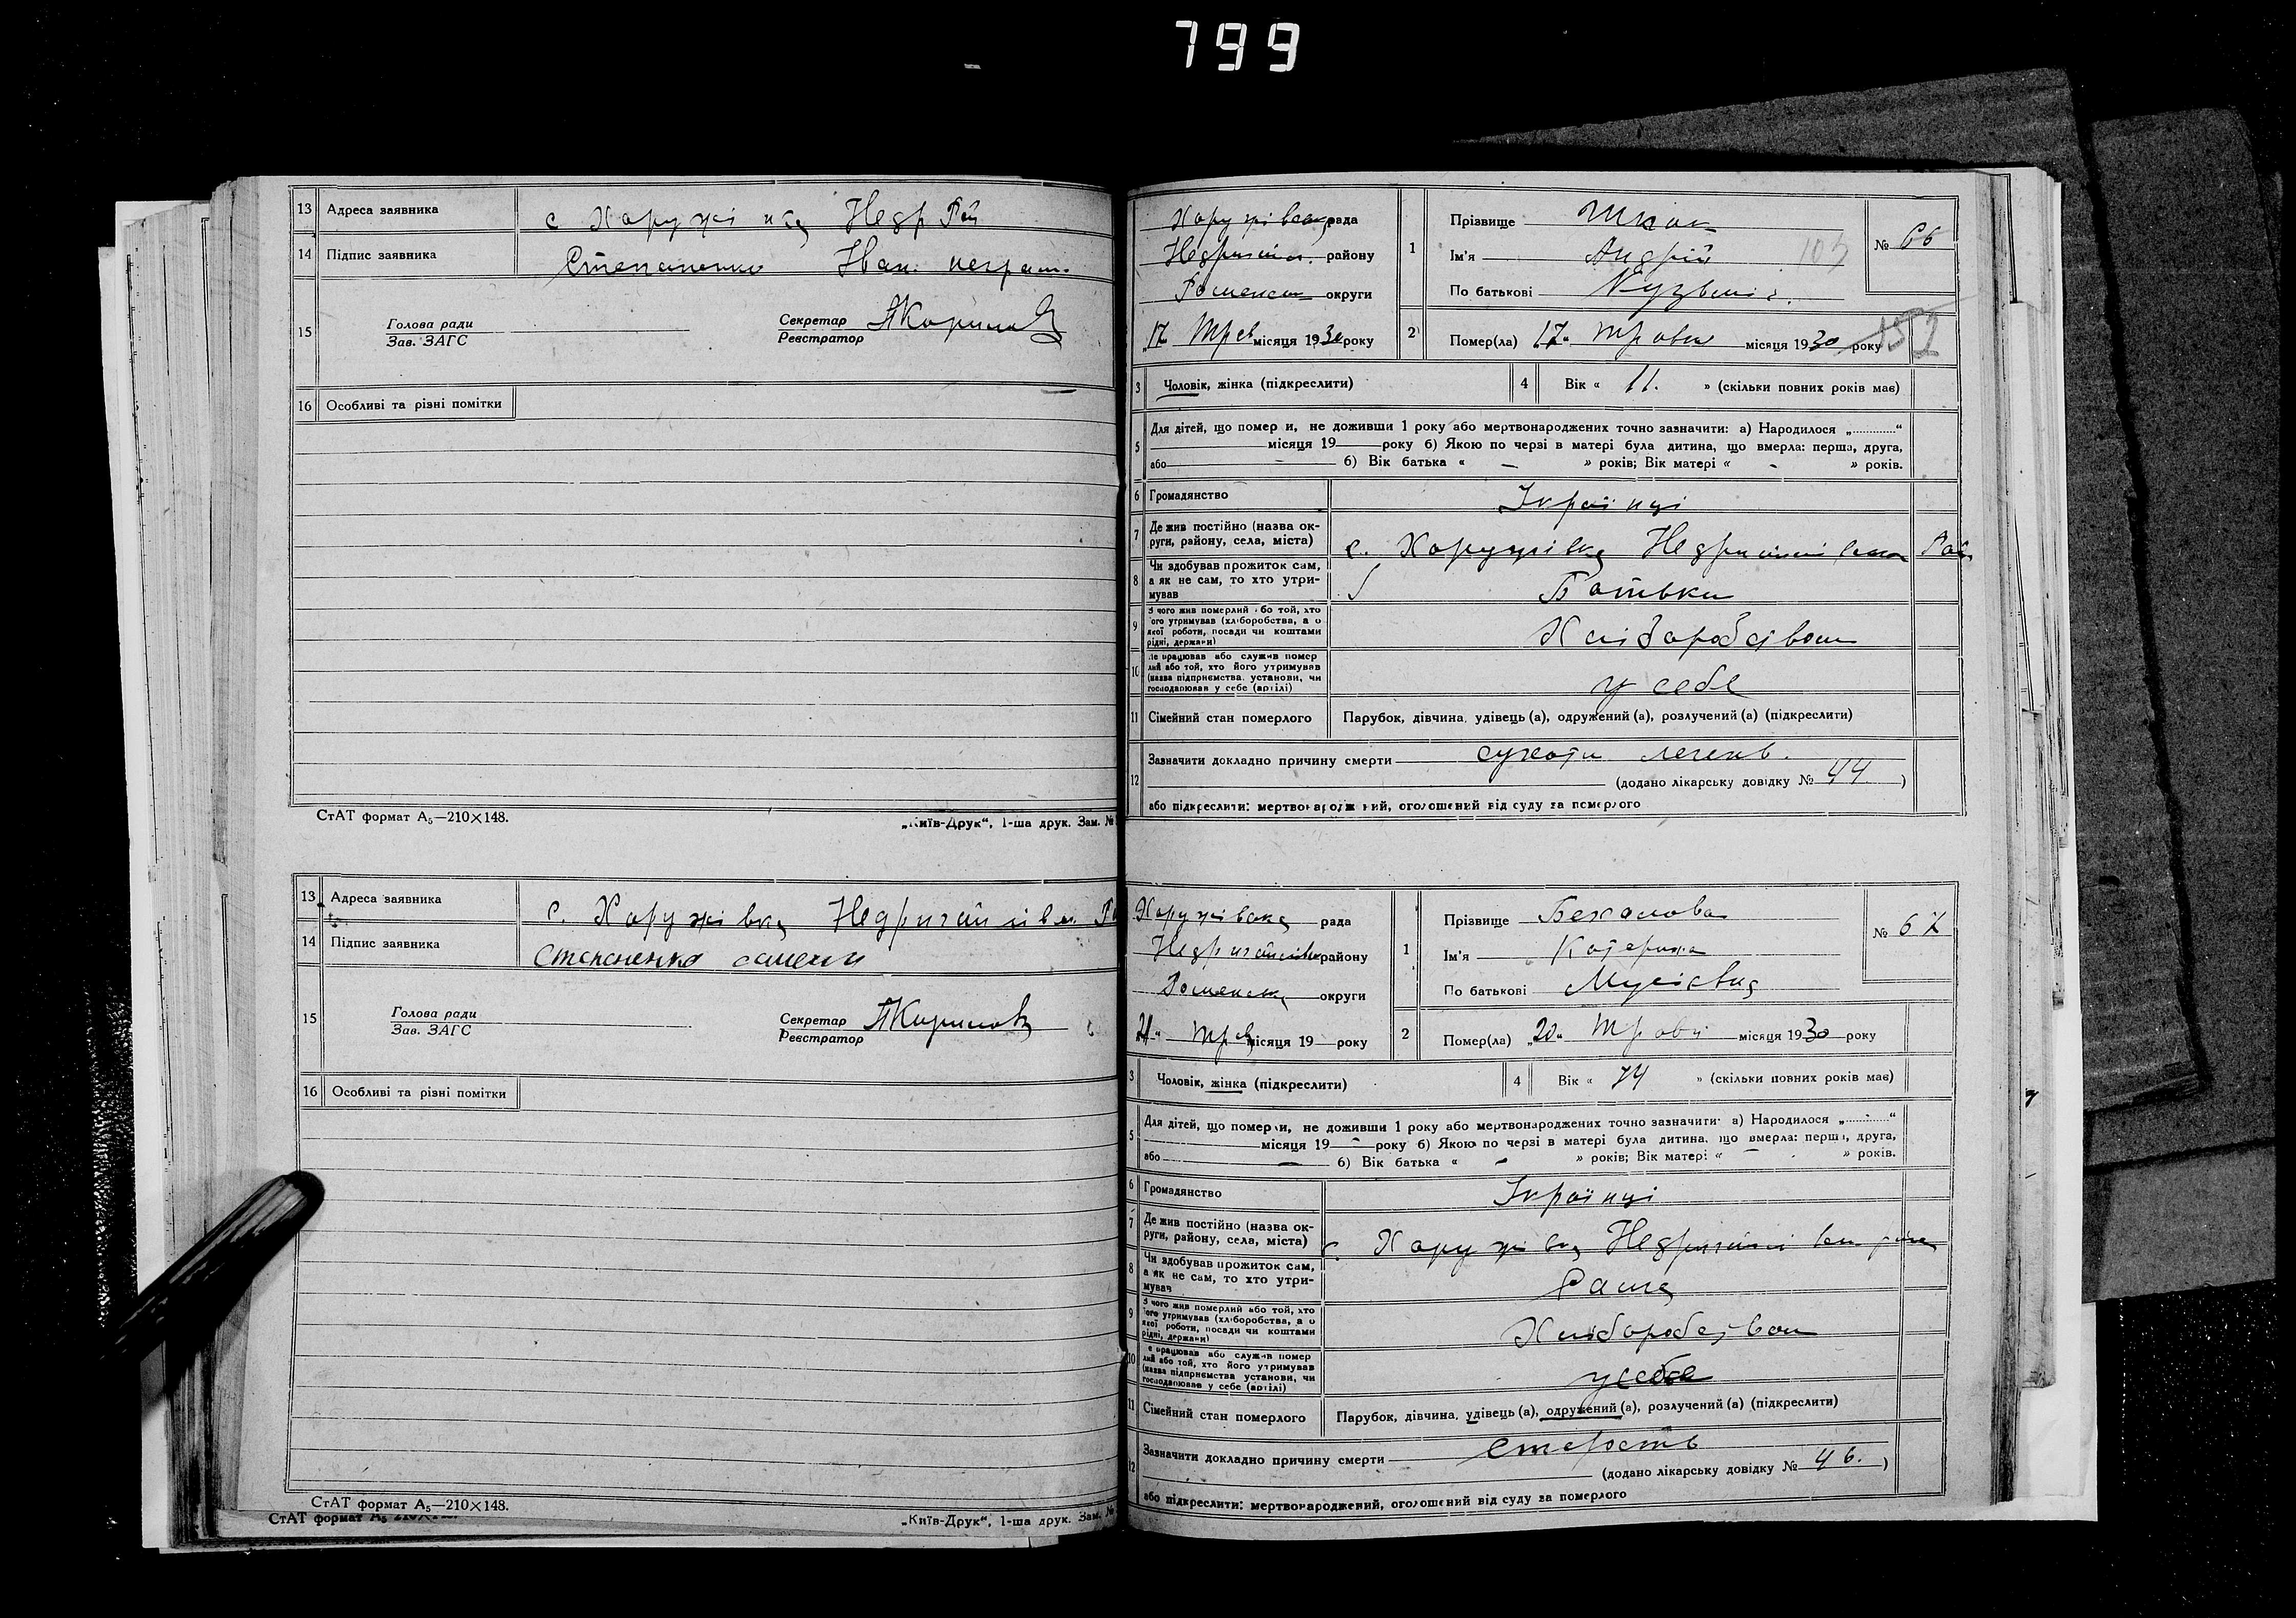 799
13 Адреса заявника с Хоружівка Недр Рай
14 Підпис заявника Степаненко Іван неграм.
15 Голова ради
Зав. ЗАГС
Секретар
Реєстратор
16 Особливі та різні помітки
СтАТ формат А5—210×148.
„Київ-Друк“, 1-ша друк. Зам. №
13 Адреса заявника с. Хоружівка Недригайлівськ
14 Підпис заявника Степаненко
15 Голова ради
Зав. ЗАГС
Секретар
Реєстратор
16 Особливі та різні помітки
СтАТ формат А5—210×148.
СтАТ формат А5
„Київ-Друк“, 1-ша друк. Зам. №
Хоружівськ рада
Недригайлів. району
Роменськ округи
„17 Трав місяця 1930 року
1 Прізвище
Ім'я Андрій
По батькові Кузьміч.
№ 66
103
152
2 Помер(ла) 17“ Травня місяця 1930 року
3 Чоловік, жінка (підкреслити)
4 Вік « 11. » (скільки повних років має)
5 Для дітей, що помер и, не доживши 1 року або мертвонароджених точно зазначити: а) Народилося „............“
місяця 19 року б) Якою по черзі в матері була дитина, що вмерла: перша, друга,
або б) Вік батька « — » років; Вік матері « - » років.
6 Громадянство Українці
7 Де жив постійно (назва ок-
руги, району, села, міста) с. Хоружівка Недригайлівськ Рай
8 Чи здобував прожиток сам,
а як не сам, то хто утри-
мував Батьки
9 З чого жив померлий або той, хто
його утримував (хліборобства, а о
якої роботи, посади чи коштами
рідні, держави) Хліборобством
10 Де працював або служив помер
лий або той, хто його утримував
(назва підприємства, установи, чи
господарював у себе (артілі) у себе
11 Сімейний стан померлого Парубок, дівчина, удівець (а), одружений (а), розлучений (а) (підкреслити)
12 Зазначити докладно причину смерти сухоти легень.
(додано лікарську довідку № 44 )
або підкреслити: мертвонароджений, оголошений від суду за померлого
Хоружівська рада
Недригайлівськ району
Роменська округи
21“ Трав місяця 19 року
1 Прізвище
Ім'я Катерина
По батькові Мусієвна
№ 67
2 Помер(ла) „20“ Травня місяця 1930 року
3 Чоловік, жінка (підкреслити)
4 Вік « 74 » (скільки повних років має)
5 Для дітей, що померли, не доживши 1 року або мертвонароджених точно зазначити: а) Народилося „............“
місяця 19 - року б) Якою по черзі в матері була дитина, що вмерла: перша, друга,
або — б) Вік батька « - » років; Вік матері « — » років.
6 Громадянство Українці
7 Де жив постійно (назва ок-
руги, району, села, міста) с. Хоружівка Недригайлівськ
8 Чи здобував прожиток сам,
а як не сам, то хто утри-
мував Сама
9 З чого жив померлий або той, хто
його утримував (хліборобства, а о
якої роботи, посади чи коштами
рідні, держави) Хліборобством
10 Де працював або служив помер
лий або той, хто його утримував
(назва підприємства установи, чи
господарював у себе (артілі) у себе
11 Сімейний стан померлого Парубок, дівчина, удівець (а), одружений (а), розлучений (а) (підкреслити)
12 Зазначити докладно причину смерти старость
(додано лікарську довідку № 46. )
або підкреслити: мертвонароджений, оголошений від суду за померлого